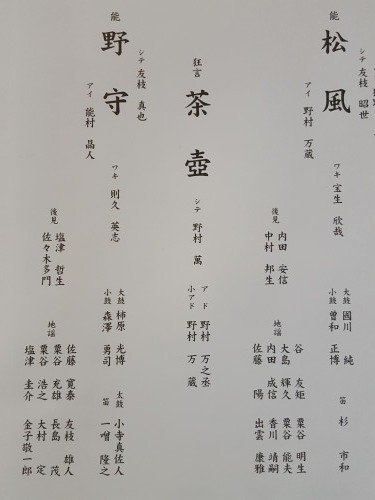 能
松風
シテ 友枝 昭世
アイ 野村 万蔵
ワキ 宝生 欣哉
大鼓 國川 純
小鼓 曽和 正博
笛 杉 市和
後見
内田 安信
中村 邦生
地謡
谷 友矩
大島 輝久
内田 成信
佐藤 陽
粟谷 明生
粟谷 能夫
香川 靖嗣
出雲 康雅
狂言
茶壺
シテ 野村 萬
アド 野村 万之丞
小アド 野村 万蔵
能
野守
シテ 友枝 真也
アイ 能村 晶人
ワキ 則久 英志
大鼓 柿原 光博
小鼓 森澤 勇司
太鼓 小寺真佐人
笛 一噌 隆之
後見
塩津 哲生
佐々木多門
地謡
佐藤 寛泰
粟谷 充雄
粟谷 浩之
塩津 圭介
友枝 雄人
長島 茂
大村 定
金子敬一郎